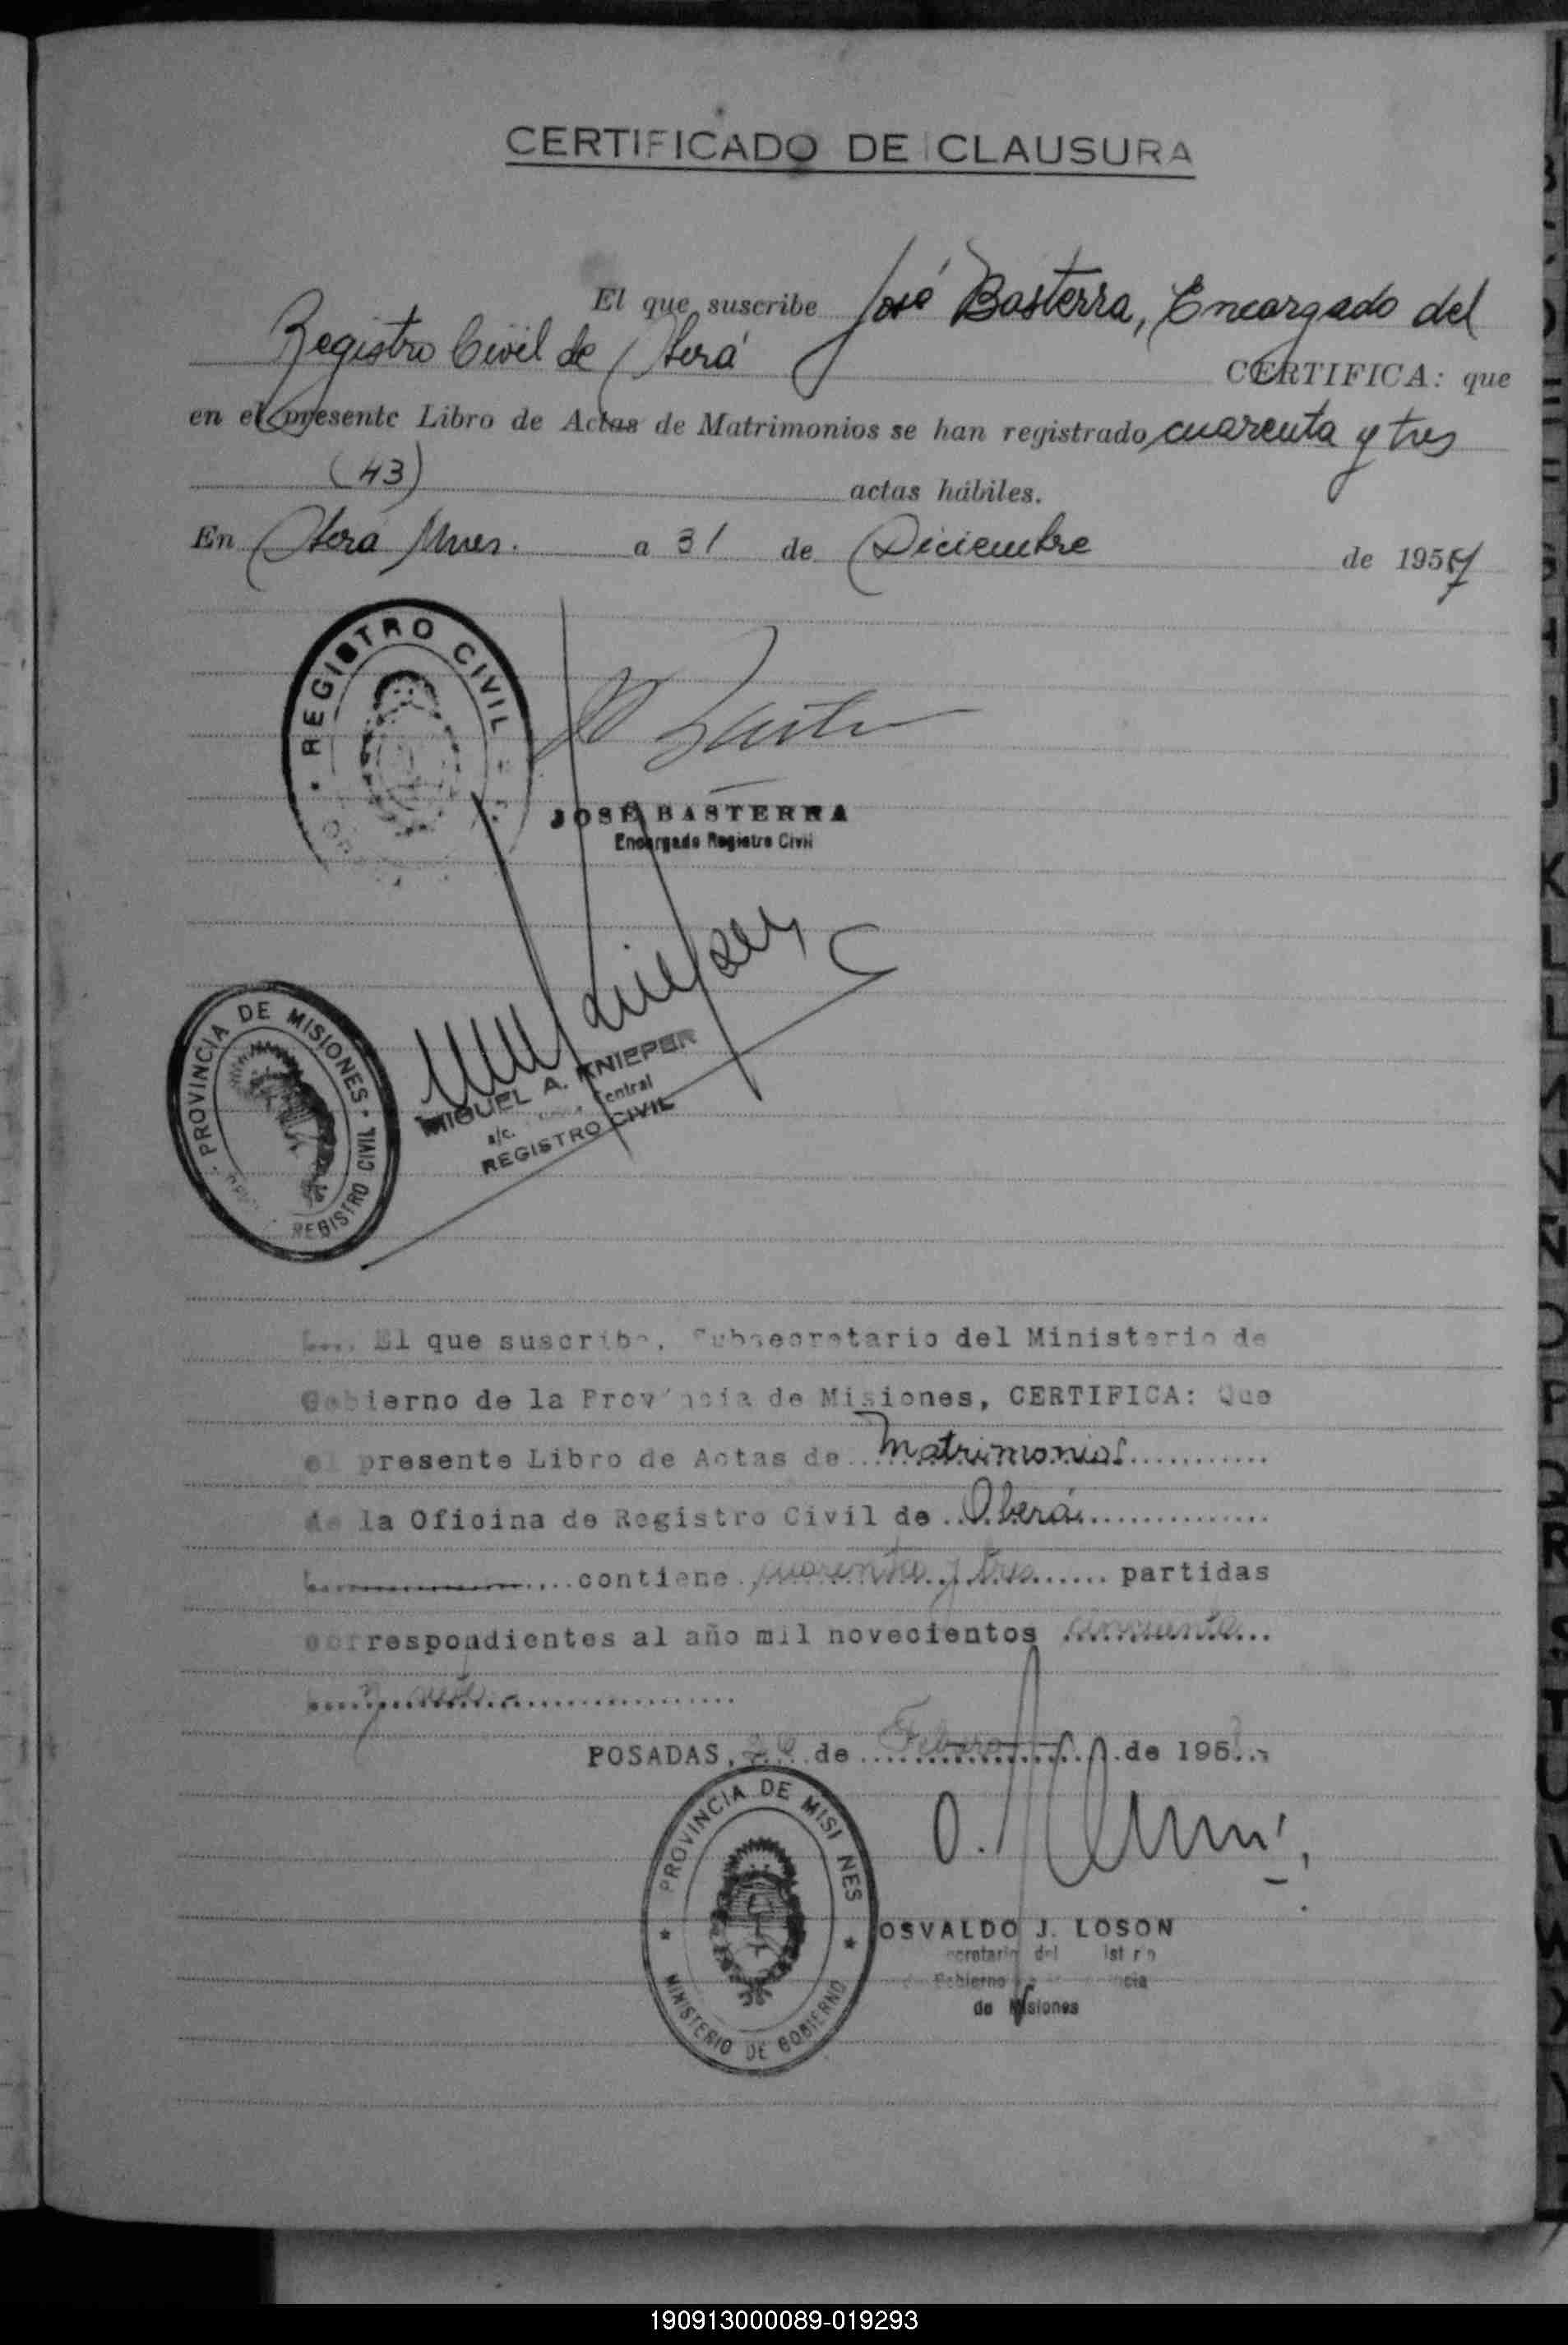 CERTIFICADO DE CLAUSURA
El que suscribe José Basterra, Encargado del
Registro Civil de Oberá CERTIFICA: que
en el presente Libro de Actas de Matrimonios se han registrado cuarenta y tres
(43) actas hábiles.
En Oberá Mnes. a 31 de Diciembre de 1957
REGISTRO CIVIL
JOSÉ BASTERRA
Encargado Registro Civil
PROVINCIA DE MISIONES - REGISTRO CIVIL
MIGUEL A. KNIEPER
a/c. Central
REGISTRO CIVIL
El que suscribe, Subsecretario del Ministerio de
Gobierno de la Provincia de Misiones, CERTIFICA: Que
el presente Libro de Actas de Matrimonios
de la Oficina de Registro Civil de Oberá
contiene cuarenta y tres partidas
correspondientes al año mil novecientos cincuenta
y siete
POSADAS, de Febrero de 195
PROVINCIA DE MISI NES
MINISTERIO DE GOBIERNO
OSVALDO J. LOSON
Gobierno
de Misiones
B
J
K
L
N
O
P
Q
R
S
T
U
V
W
X
190913000089-019293